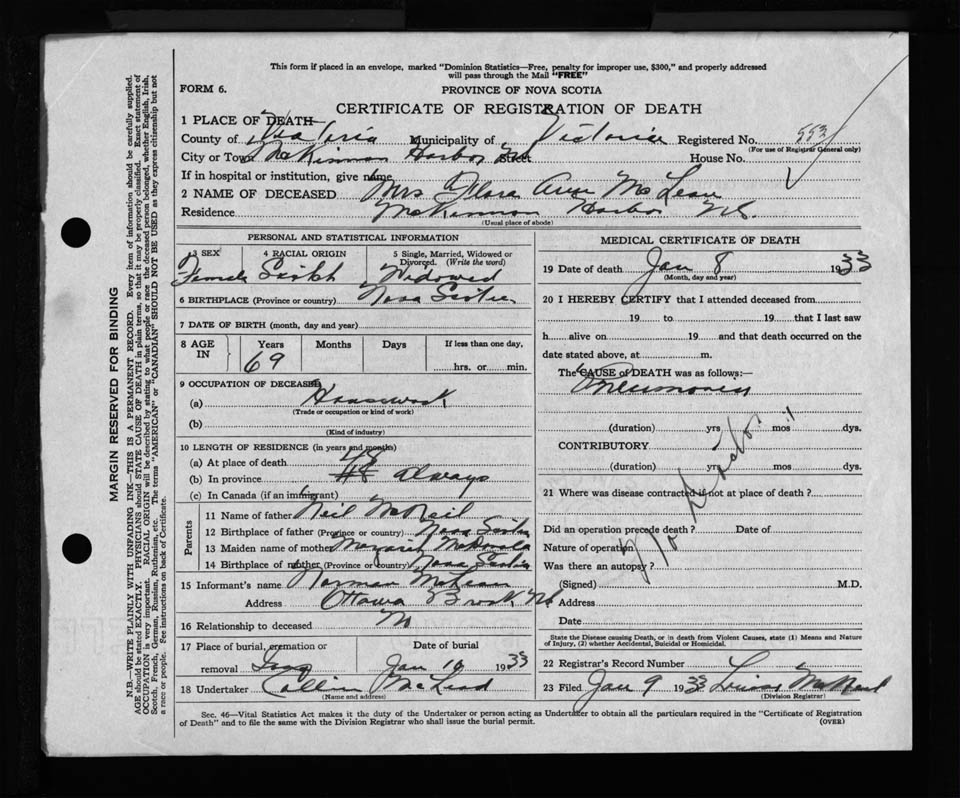 This form if placed in an envelope, marked "Dominion Statistics—Free, penalty for improper use, $300," and properly addressed
will pass through the Mail "FREE"
FORM 6.
PROVINCE OF NOVA SCOTIA
CERTIFICATE OF REGISTRATION OF DEATH
1 PLACE OF DEATH
County of Victoria Municipality of Victoria Registered No. 553
(For use of Registrar General only)
City or Town McKinnon Harbor Street House No.
If in hospital or institution, give name
2 NAME OF DECEASED Mrs Flora Ann McLean
Residence McKinnon Harbor NS
(Usual place of abode)
PERSONAL AND STATISTICAL INFORMATION
3 SEX 4 RACIAL ORIGIN 5 Single, Married, Widowed or
Divorced. (Write the word)
Female Scotch Widowed
6 BIRTHPLACE (Province or country) Nova Scotia
7 DATE OF BIRTH (month, day and year)
8 AGE IN Years Months Days If less than one day,
69 hrs. or min.
9 OCCUPATION OF DECEASED
(a) Housework
(Trade or occupation or kind of work)
(b)
(Kind of industry)
10 LENGTH OF RESIDENCE (in years and months)
(a) At place of death 48
(b) In province always
(c) In Canada (if an immigrant)
Parents
11 Name of father Neil McNeil
12 Birthplace of father (Province or country) Nova Scotia
13 Maiden name of mother Margaret
14 Birthplace of mother (Province or country) Nova Scotia
15 Informant's name Norman McLean
Address Ottawa Brook NS
16 Relationship to deceased
17 Place of burial, cremation or Date of burial
removal Iona Jan 10 1933
18 Undertaker Collin McLeod
(Name and address)
MEDICAL CERTIFICATE OF DEATH
19 Date of death Jan 8 1933
(Month, day and year)
20 I HEREBY CERTIFY that I attended deceased from
19 to 19 that I last saw
h alive on 19 and that death occurred on the
date stated above, at m.
The CAUSE of DEATH was as follows:—
Pneumonia
(duration) yrs mos dys.
CONTRIBUTORY
(duration) yrs mos. dys.
No Doctor
21 Where was disease contracted if not at place of death?
Did an operation precede death? Date of
Nature of operation
Was there an autopsy?
(Signed) M.D.
Address
Date
State the Disease causing Death, or in death from Violent Causes, state (1) Means and Nature
of Injury, (2) whether Accidental, Suicidal or Homicidal.
22 Registrar's Record Number
23 Filed Jan 9 1933
(Division Registrar)
Sec. 46—Vital Statistics Act makes it the duty of the Undertaker or person acting as Undertaker to obtain all the particulars required in the "Certificate of Registration
of Death" and to file the same with the Division Registrar who shall issue the burial permit.
(OVER)
MARGIN RESERVED FOR BINDING
N.B.—WRITE PLAINLY WITH UNFADING INK—THIS IS A PERMANENT RECORD. Every item of information should be carefully supplied.
AGE should be stated EXACTLY. PHYSICIANS should STATE CAUSE OF DEATH in plain terms, so that it may be properly classified. Exact statement of
OCCUPATION is very important. RACIAL ORIGIN will be described by stating to what people or race the deceased person belonged, whether English, Irish,
Scotch, French, German, Russian, Ruthenian, etc. The terms "AMERICAN" or "CANADIAN" SHOULD NOT BE USED as they express citizenship but not
a race or people. See instructions on back of Certificate.